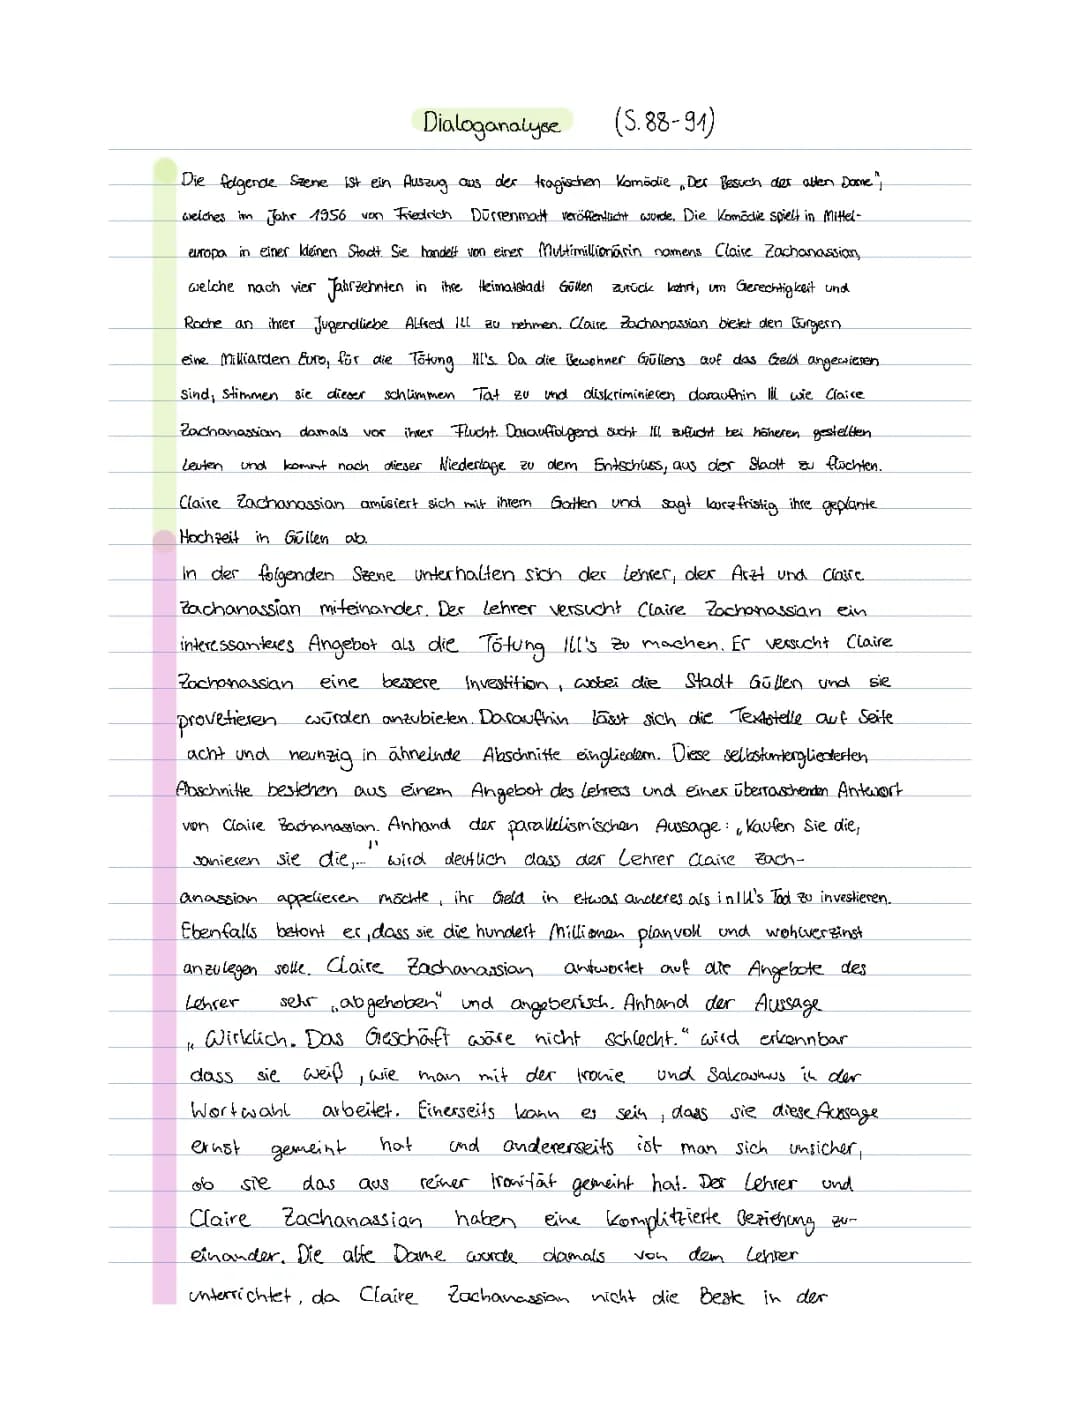 Dialoganalyse (S. 88-91)
Die folgende Szene ist ein Auszug aus der tragischen Komödie „Der Besuch der alten Dame",
welches im Jahr 1956 von Friedrich Dürrenmatt veröffentlicht wurde. Die Komödie spielt in Mittel-
europa in einer kleinen Stadt. Sie handelt von einer Multimillionärin namens Claire Zachanassian,
welche nach vier Jahrzehnten in ihre Heimatstadt Güllen zurück kehrt, um Gerechtigkeit und
Rache an ihrer Jugendliebe Alfred Ill zu nehmen. Claire Zachanassian bietet den Bürgern
eine Milliarden Euro, für die Tötung Ill's. Da die Bewohner Güllens auf das Geld angewiesen
sind, stimmen sie dieser schlimmen Tat zu und diskriminieren daraufhin Ill wie Claire
Zachanassian damals vor ihrer Flucht. Darauffolgend sucht Ill zuflucht bei höheren gestellten
Leuten und kommt nach dieser Niederlage zu dem Entschluss, aus der Stadt zu flüchten.
Claire Zachanassian amüsiert sich mit ihrem Gatten und sagt kurzfristig ihre geplante
Hochzeit in Güllen ab.
In der folgenden Szene unterhalten sich der Lehrer, der Arzt und Claire
Zachanassian miteinander. Der Lehrer versucht Claire Zachanassian ein
interessanteres Angebot als die Tötung Ill's zu machen. Er versucht Claire
Zachanassian eine bessere Investition, wobei die Stadt Güllen und sie
provetieren würden anzubieten. Daraufhin lässt sich die Textstelle auf Seite
acht und neunzig in ähnelnde Abschnitte eingliedern. Diese selbstuntergliederten
Abschnitte bestehen aus einem Angebot des Lehrers und einer überraschenden Antwort
von Claire Zachanassian. Anhand der parallelismischen Aussage: „Kaufen Sie die,
sanieren sie die,..." wird deutlich dass der Lehrer Claire Zach-
anassian appelieren möchte, ihr Geld in etwas anderes als in Ill's Tod zu investieren.
Ebenfalls betont er, dass sie die hundert Millionen planvoll und wohlverzinst
anzulegen solle. Claire Zachanassian antwortet auf die Angebote des
Lehrer sehr „abgehoben" und angeberisch. Anhand der Aussage
„Wirklich. Das Geschäft wäre nicht schlecht." wird erkennbar
dass sie weiß, wie man mit der Ironie und Sakasmus in der
Wortwahl arbeitet. Einerseits kann es sein, dass sie diese Aussage
ernst gemeint hat und andererseits ist man sich unsicher,
ob sie das aus reiner Ironität gemeint hat. Der Lehrer und
Claire Zachanassian haben eine komplitzierte Beziehung zu-
einander. Die alte Dame wurde damals von dem Lehrer
unterrichtet, da Claire Zachanassian nicht die Beste in der